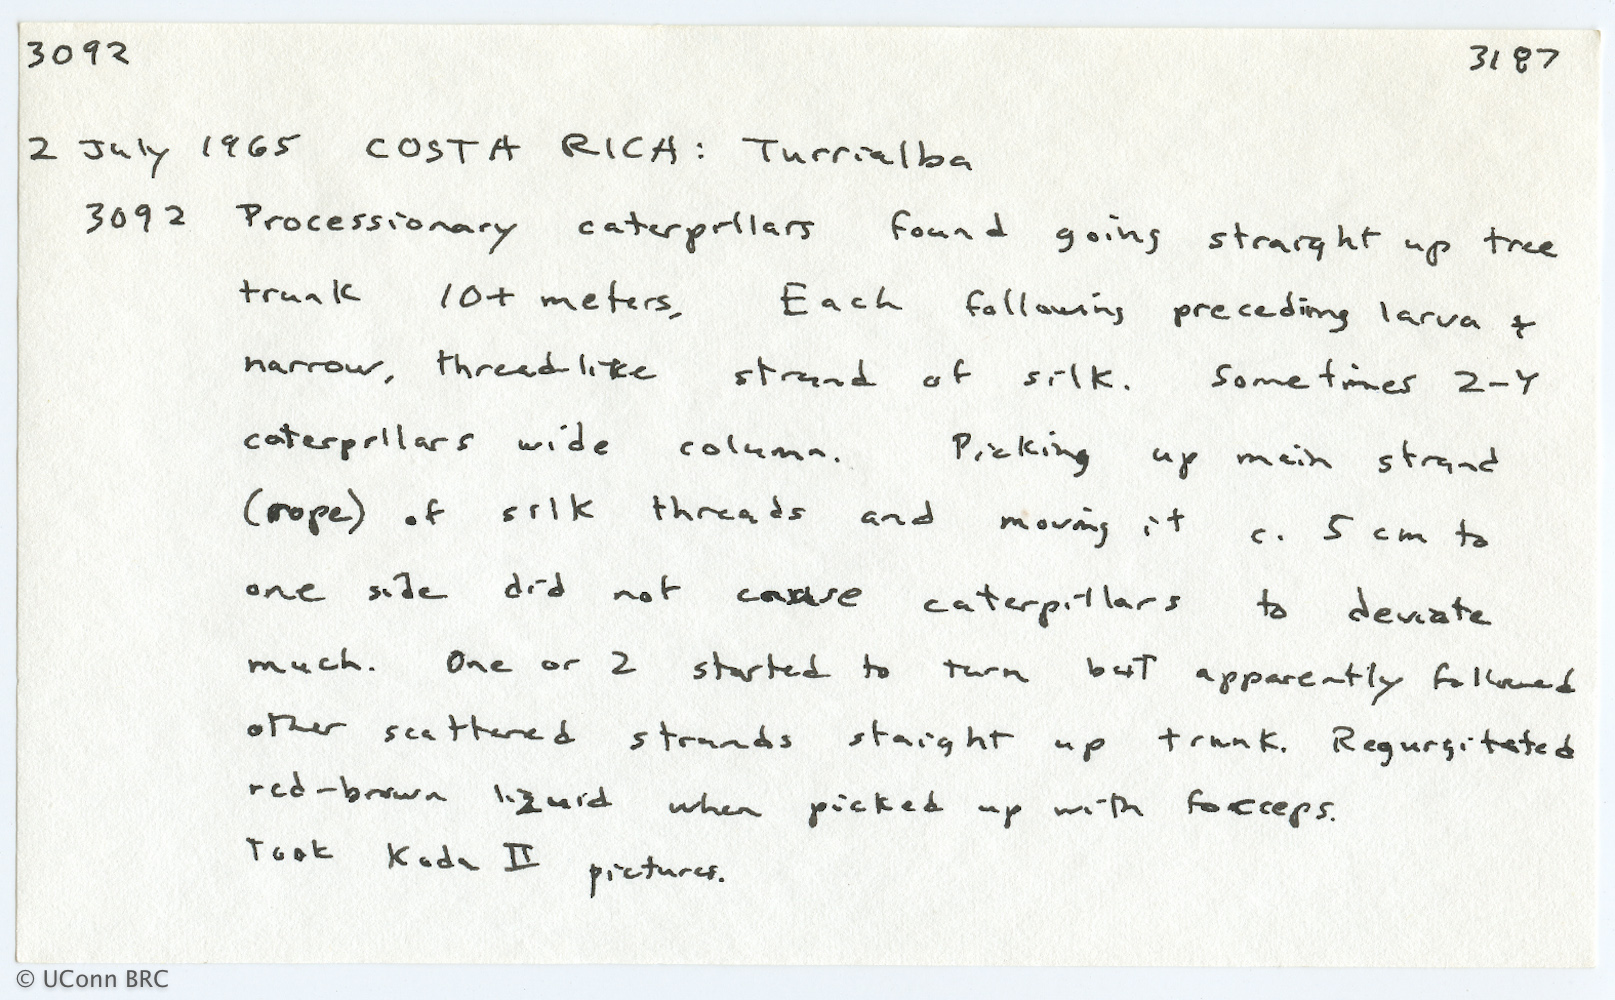 3092 3187
2 July 1965 COSTA RICA: Turrialba
3092 Processionary caterpillars found going straight up tree
trunk 10+ meters. Each following preceding larva &
narrow, thread-like strand of silk. Sometimes 2-4
caterpillars wide column. Picking up main strand
(rope) of silk threads and moving it c. 5 cm to
one side did not cause caterpillars to deviate
much. One or 2 started to turn but apparently followed
other scattered strands staight up trunk. Regurgitated
red-brown liquid when picked up with forceps.
Took Koda II pictures.
© UConn BRC